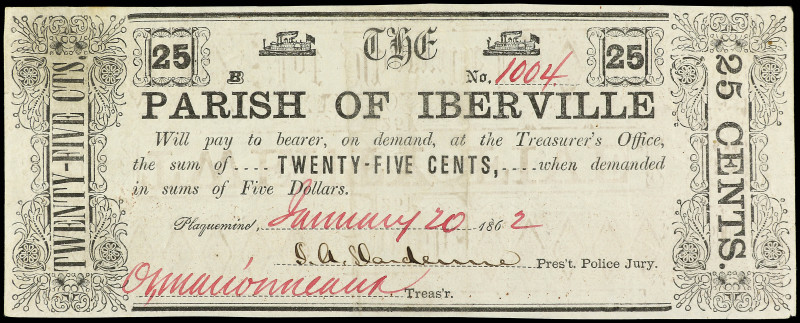 TWENTY-FIVE CTS.
25 THE 25
B No. 1004.
PARISH OF IBERVILLE
Will pay to bearer, on demand, at the Treasurer's Office,
the sum of .... TWENTY-FIVE CENTS, .... when demanded
in sums of Five Dollars.
Plaquemine, January 20 1862
Pres't. Police Jury.
Treas'r.
25 CENTS.